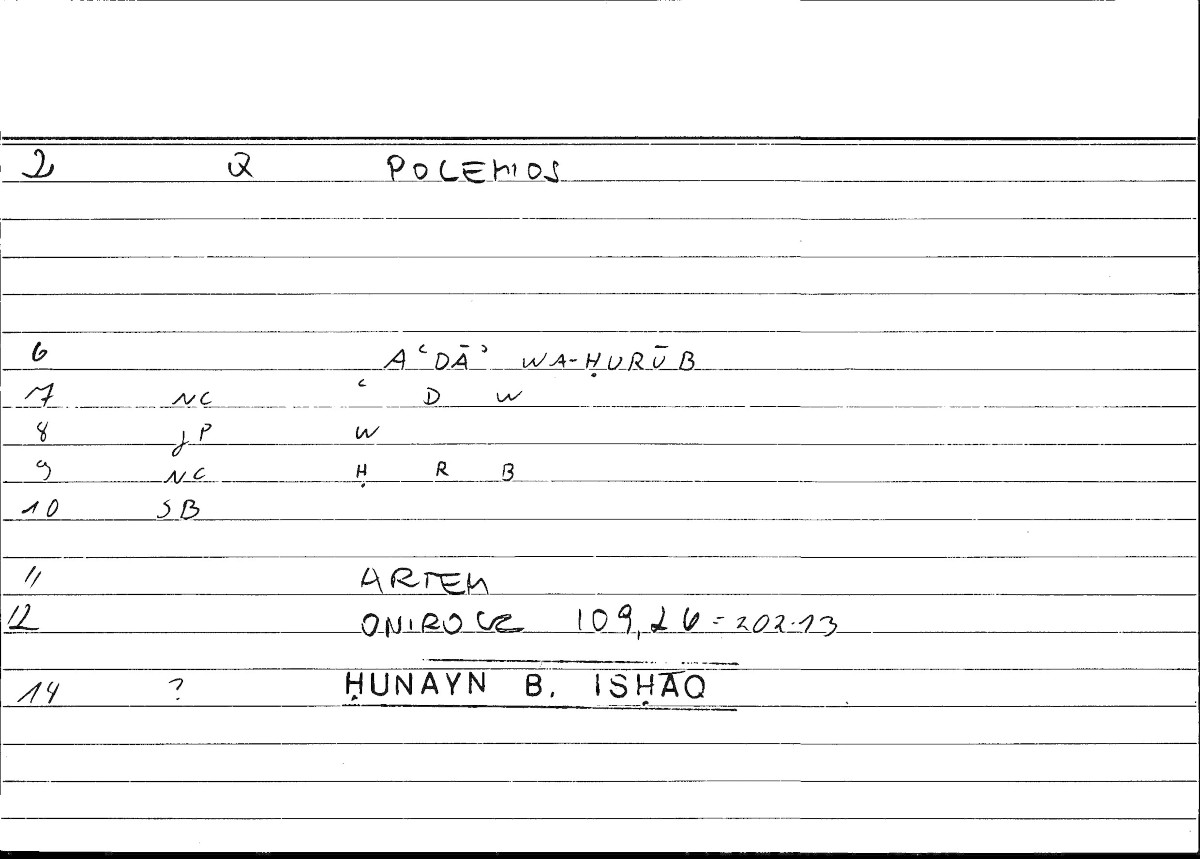 2 Q POLEMOS
6 AʿDĀʾ WA-ḤURŪB
7 NC ʿ D W
8 JP W
9 NC Ḥ R B
10 SB
11 ARTEM
12 ONIROCR 109,26=202.13
14 ? ḤUNAYN B. ISḤĀQ